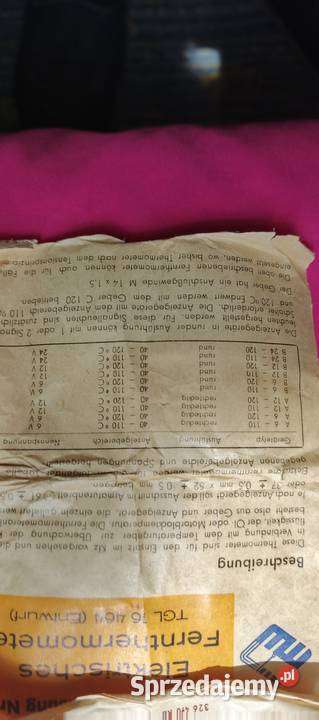 Elektrisches
Fernthermomete
TGL 16 464 (Entwurf)
Beschreibung
Diese Thermometer sind für den Einsatz in Kfz vorgesehen und die
in Verbindung mit dem Temperaturgeber zur Überwachung der K
flüssigkeit, der Öl- oder Motorblocktemperatur. Die
besteht also aus Geber und Anzeigegerät, die einzeln geliefert
Je nach Anzeigegerät soll der Ausschnitt im Armaturenbrett 61 ± 0,5
oder 37 ± 0,5 mm x 52 ± 0,5 mm betragen.
Anzeigebereiche und Spannungen hergestellt
Gerätetyp Ausführung Anzeigebereich Nennspannung
A 6 - 110 rechteckig 40 - 110 °C 6 V
A 6 - 120 rechteckig 40 - 120 °C 6 V
A 12 - 110 rechteckig 40 - 110 °C 12 V
A 12 - 120 rechteckig 40 - 120 °C 12 V
B 6 - 110 rund 40 - 110 °C 6 V
B 6 - 120 rund 40 - 120 °C 6 V
B 12 - 110 rund 40 - 110 °C 12 V
B 12 - 120 rund 40 - 120 °C 12 V
B 24 - 110 rund 40 - 110 °C 24 V
B 24 - 120 rund 40 - 120 °C 24 V
Die Anzeigegeräte in runder Ausführung können mit 1 oder 2 Signal
leuchten hergestellt werden. Für diese Signalleuchten sind zusätzlich
Schalter erforderlich. Die Anzeigegeräte mit dem Anzeigebereich 110 °C
und 120 °C werden mit dem Geber G 120 betrieben.
Die Geber hat ein Anschlußgewinde M 14 x 1,5
Die oben beschriebenen Fernthermometer können auch für die Fäl
eingesetzt werden, wo bisher Thermometer nach dem Tensionsprinzip
Sprzedajemy.pl